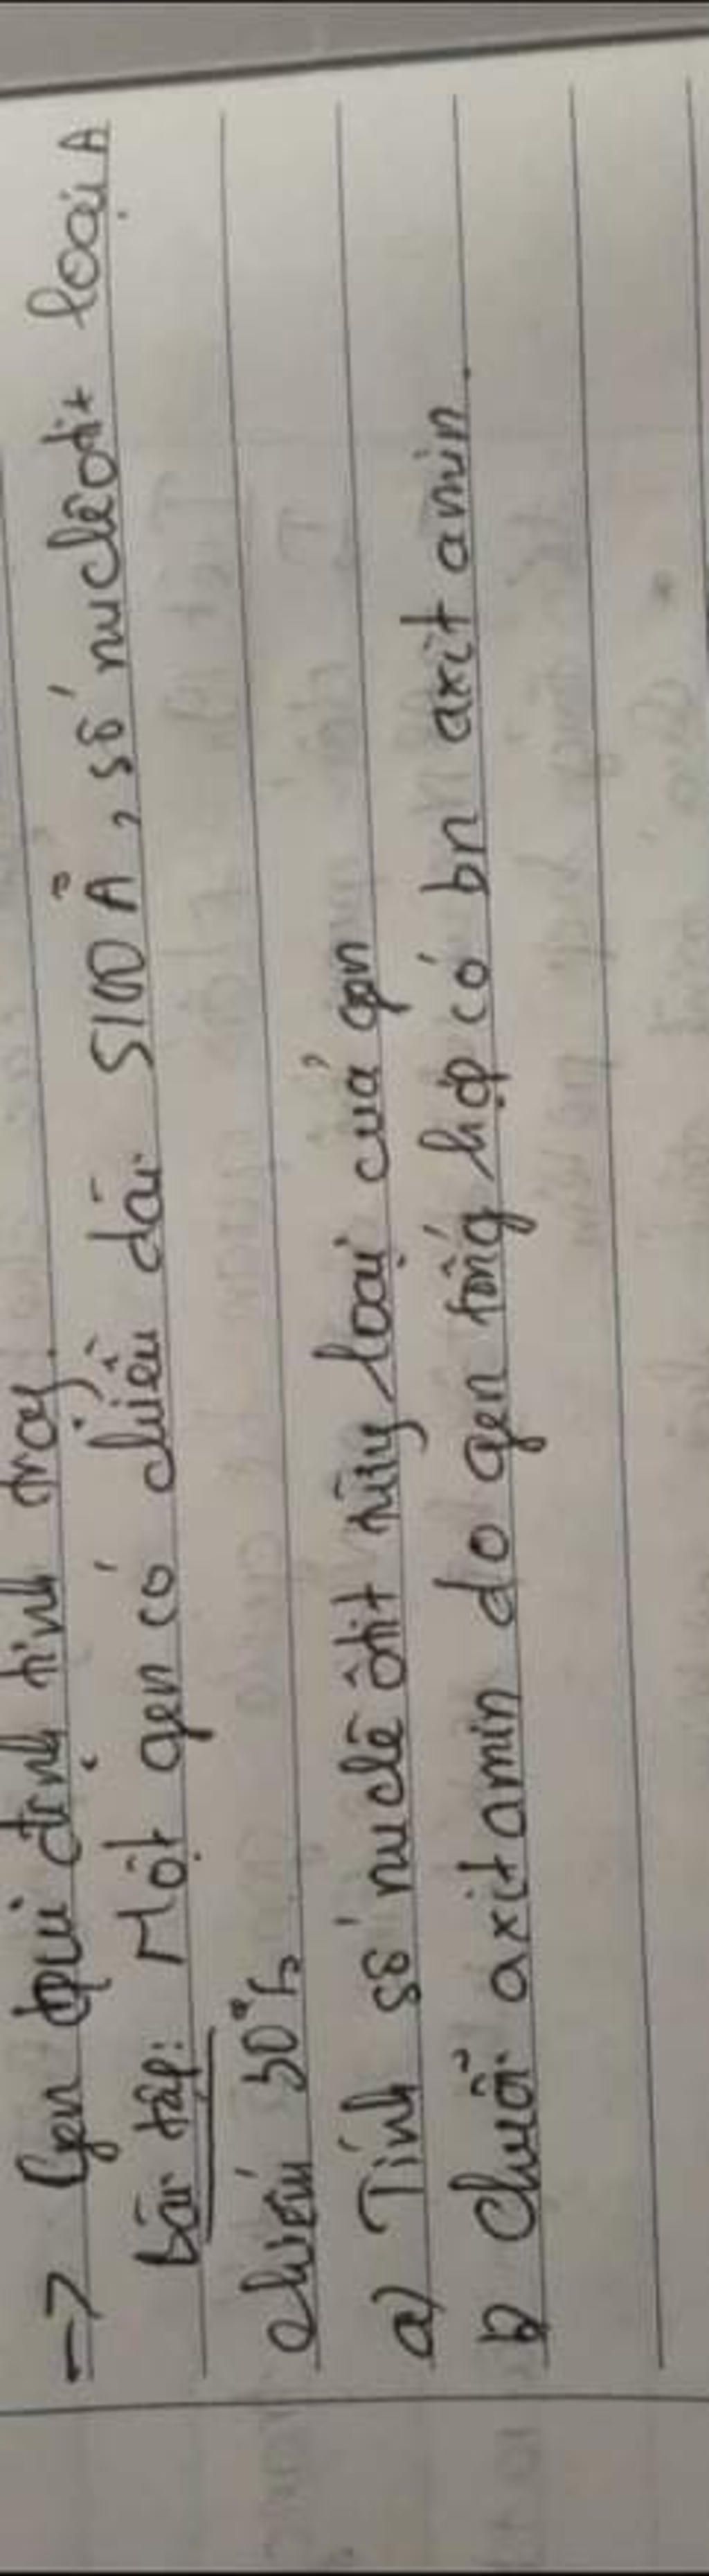 → Gen qui định tính trạng.
Bài tập: Một gen có chiều dài 5100 Å, số nuclêôtit loại A
chiếm 30%
a) Tính số nuclêôtit từng loại của gen
b Chuỗi axitamin do gen tổng hợp có bn axit amin.